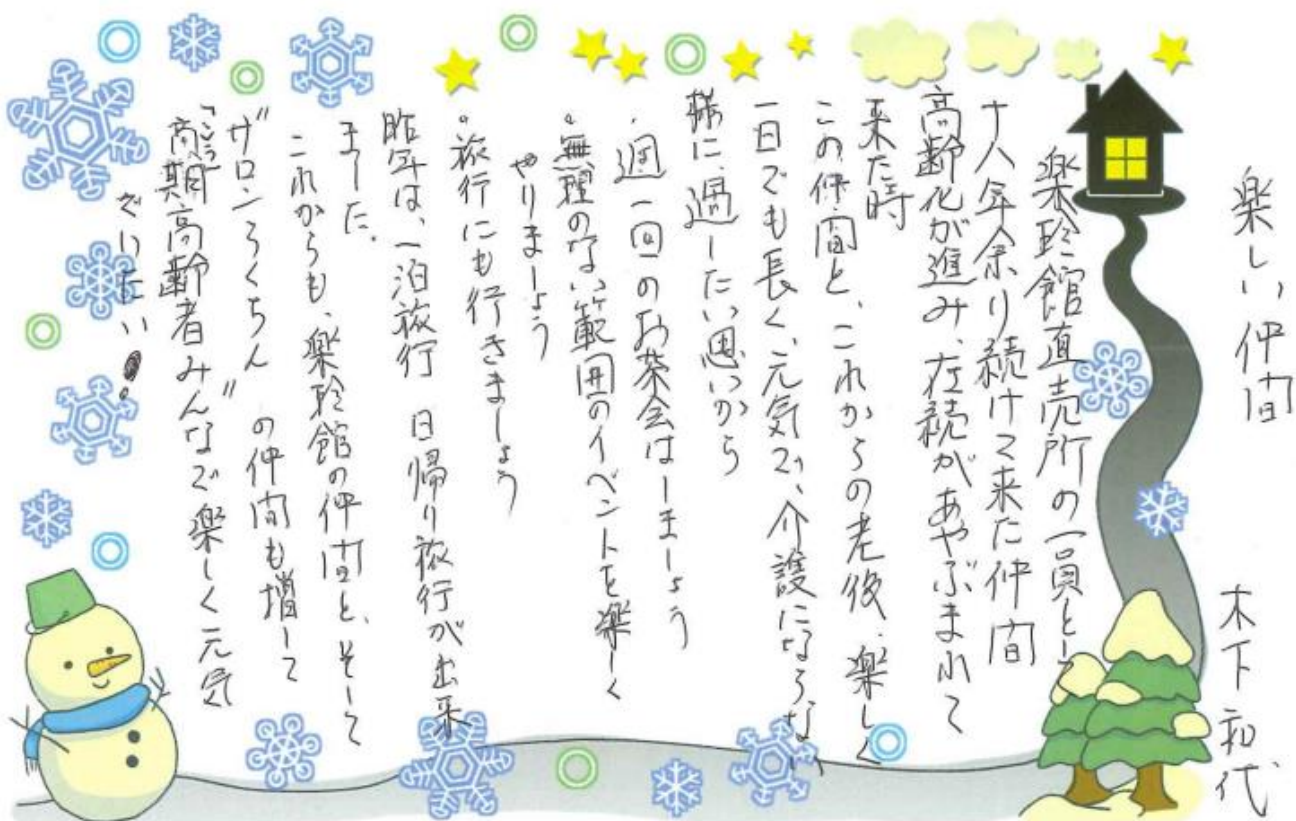 楽しい仲間
木下和代
楽玲館直売所の一員として
十八年余り続けて来た仲間
高齢化が進み、存続があやぶまれて
来た時
この仲間と、これからの老後、楽しく
一日でも長く、元気で、介護にならない
様に、過したい思いから
・週一回のお茶会はしましょう
・無理のない範囲のイベントを楽しく
やりましょう
・旅行にも行きましょう
昨年は、一泊旅行 日帰り旅行が出来
ました。
これからも、楽玲館の仲間と、そして
"サロンろくちん"の仲間も増して
高期高齢者みんなで楽しく元気
でいたい!